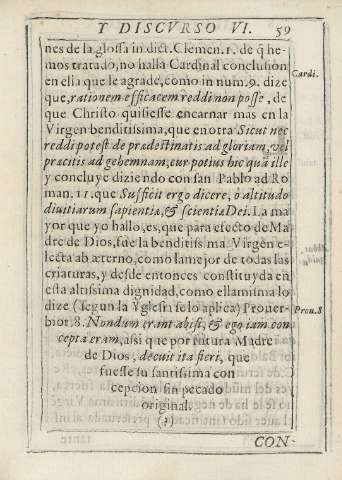 Y DISCVRSO VI. 59
nes de la glossa in dict. Clemen. 1. de q̃ he-
mos tratado, no halla Cardinal conclusion
en ella que le agrade, como in num. 9. dize
Cardi.
que, rationem efficacem reddi non posse, de
que Christo quisiesse encarnar mas en la
Virgen benditissima, que en otra Sicut nec
reddi potest de prædestinatis ad gloriam, vel
præcitis ad gehemnam, cur potius hic quã ille
y concluye diziendo con san Pablo ad Ro
man. 11. que Sufficit ergo dicere, ò altitudo
diuitiarum sapientiæ, & scientiæ Dei. La ma
yor que yo hallo, es, que para efecto de Ma
dre de Dios, fue la benditissima Virgen e-
lecta ab æterno, como la mejor de todas las
criaturas, y desde entonces constituyda en
esta altissima dignidad, como ella misma lo
dize (segun la Yglesia se lo aplica) Prouer-
Prou. 8
bior. 8. Nondum erant abissi, & ego iam con
cepta eram, assi que por futura Madre
de Dios, decuit ita fieri, que
fuesse su santissima con
cepcion sin pecado
original.
(?)
CON-